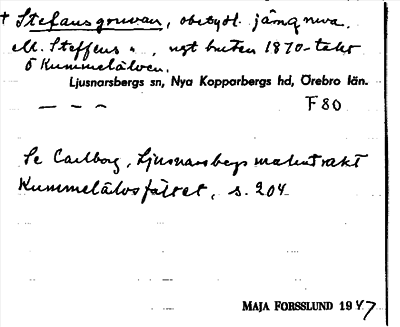 † Stefansgruvan, obetydl. järngruva.
M. Steffens " , nytt buten 1870-talet
Ö Kummelälven.
Ljusnarsbergs sn, Nya Kopparbergs hd, Örebro län.
— — — F 80
Se Carlborg, Ljusnarsbergs malmtrakt
Kummelälvsfältet, s. 204.
MAJA FORSSLUND 1947